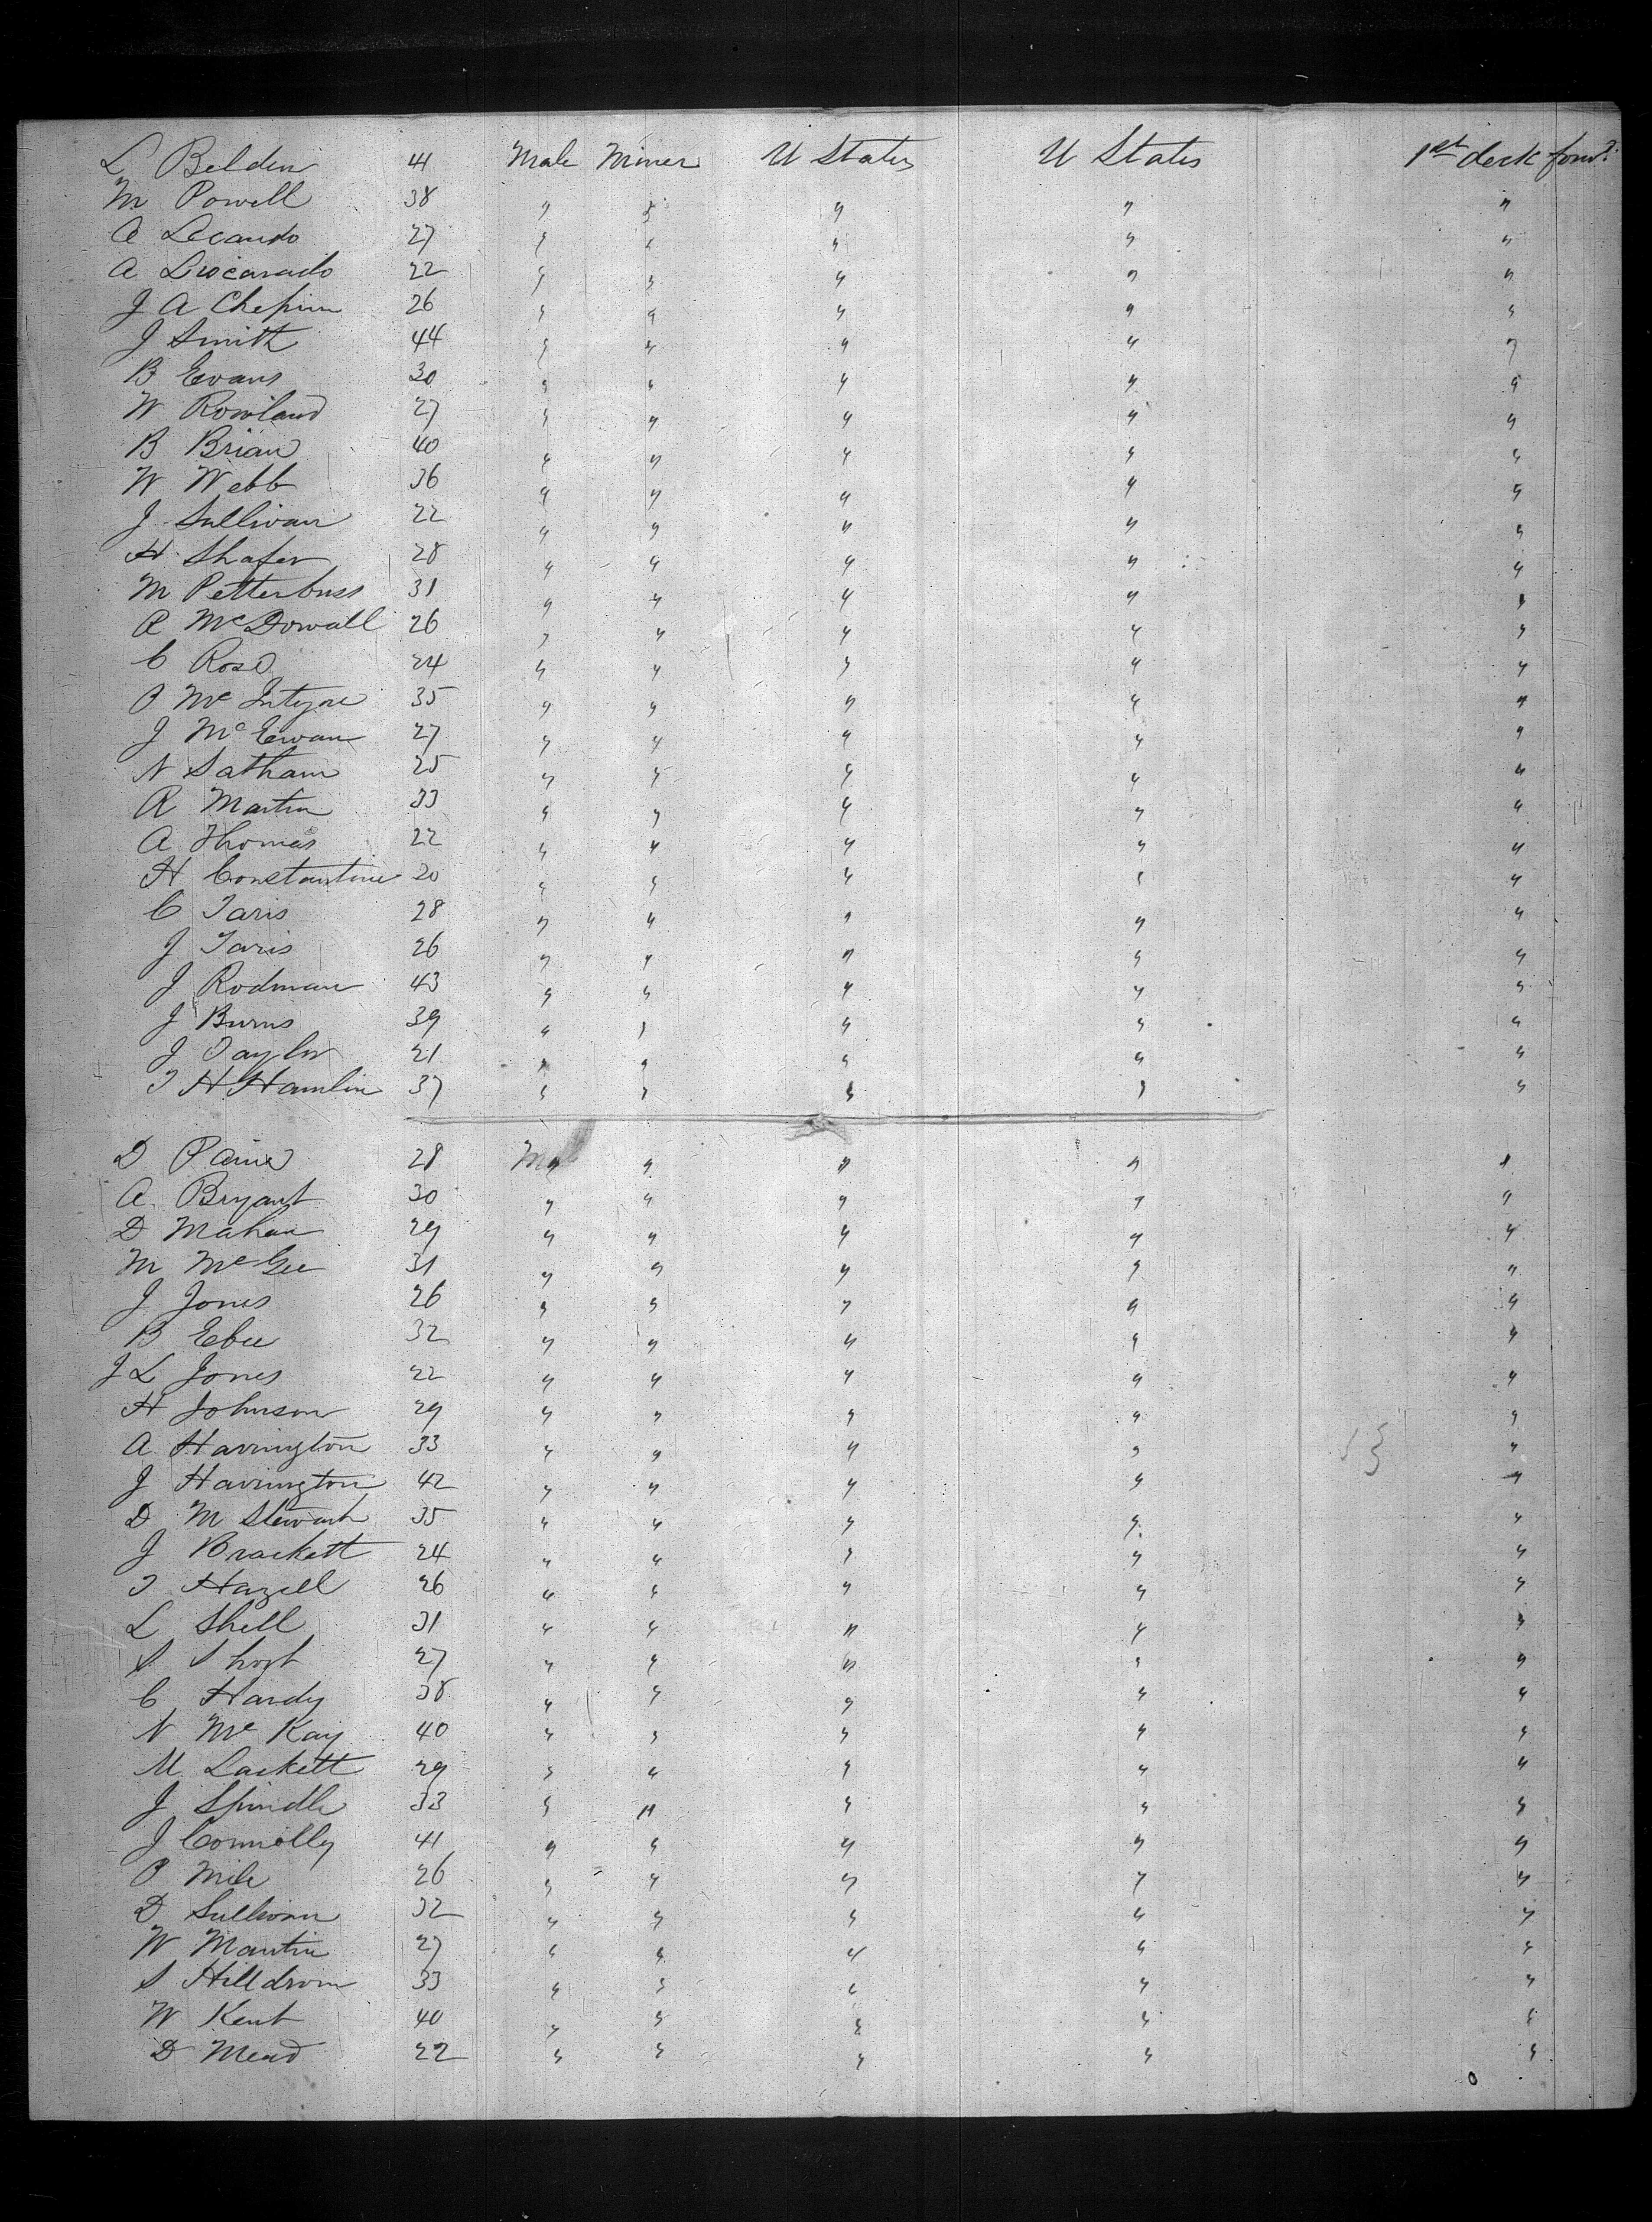 L Beldin 41 Male Miner U States U States 1st deck forwd.
M Powell 38 " " " " "
A Lecando 27 " " " " "
A 22 " " " " "
J A Chepin 26 " " " " "
J Smith 44 " " " " "
B Evans 30 " " " " "
W Rowland 27 " " " " "
B Brian 40 " " " " "
W Webb 36 " " " " "
J Sullivan 22 " " " " "
H Shafer 28 " " " " "
M Petterbuss 31 " " " " "
R McDowall 26 " " " " "
C Rose 24 " " " " "
P McIntyre 35 " " " " "
J McEwan 27 " " " " "
N Satham 25 " " " " "
R Martin 33 " " " " "
A Thomas 22 " " " " "
H Constantine 20 " " " " "
C Taris 28 " " " " "
J Taris 26 " " " " "
J Rodman 43 " " " " "
J Burns 39 " " " " "
J Taylor 21 " " " " "
T H Hamlin 37 " " " " "
D Paine 28 " " " " "
A Bryant 30 " " " " "
D Mahan 29 " " " " "
M McGee 31 " " " " "
J Jones 26 " " " " "
B Ebee 32 " " " " "
J L Jones 22 " " " " "
H Johnson 29 " " " " "
A Harrington 33 " " " " "
J Harrington 42 " " " " "
D M Stewart 35 " " " " "
J Brackett 24 " " " " "
T Hazell 26 " " " " "
L Shell 31 " " " " "
S Short 27 " " " " "
C Hardy 38 " " " " "
N McKay 40 " " " " "
M Lackett 29 " " " " "
J Spindle 33 " " " " "
J Connolly 41 " " " " "
P Mile 26 " " " " "
D Sullivan 32 " " " " "
W Martin 27 " " " " "
S Hilldrom 33 " " " " "
W Kent 40 " " " " "
D Mead 22 " " " " "